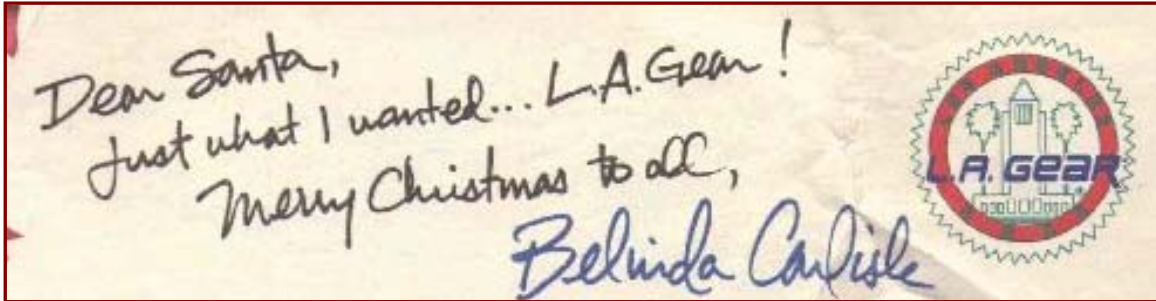 Dear Santa,
Just what I wanted... L.A. Gear!
Merry Christmas to all,
Belinda Carlisle
L.A. Gear